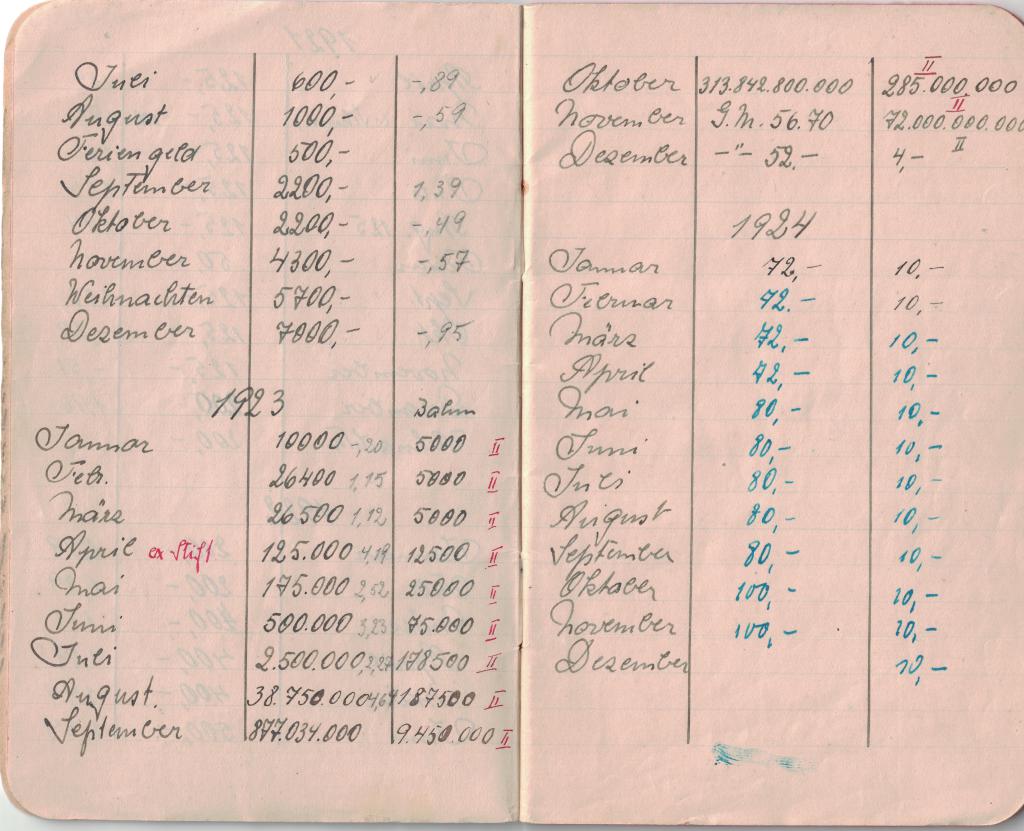 Juli 600,- -,89
August 1000,- -,59
Feriengeld 500,-
September 2200,- 1,39
Oktober 2200,- -,49
November 4300,- -,57
Weihnachten 5700,-
Dezember 7000,- -,95
1923 Bahn
Januar 10000 -,20 5000 II
Febr. 26400 1,15 5000 II
März 26.500 1,12 5000 II
April ex Stift 125.000 4,19 12500 II
Mai 175.000 2,52 25000 II
Juni 500.000 3,23 75.000 II
Juli 2.500.000 2,27 178500 II
August. 38.750.000 4,64 187500 II
September 877.034.000 9.450.000 II
II
Oktober 313.842.800.000 285.000.000
II
November G.M. 56.70 72.000.000.000
II
Dezember -"- 52.- 4,-
1924
Januar 72,- 10,-
Februar 72.- 10,-
März 72,- 10,-
April 72,- 10,-
Mai 80,- 10,-
Juni 80,- 10,-
Juli 80,- 10,-
August 80,- 10,-
September 80,- 10,-
Oktober 100,- 10,-
November 100,- 10,-
Dezember 10,-